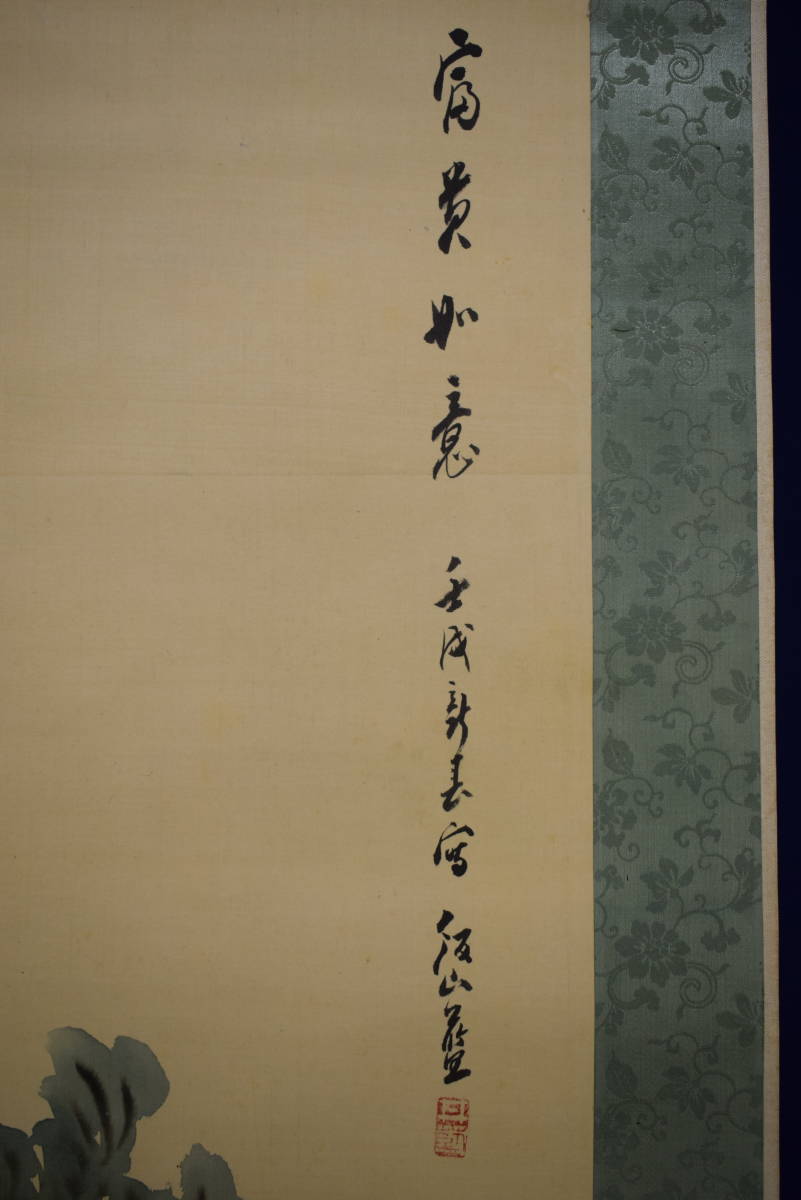 富貴如意 壬戌新春寫 飯山藍